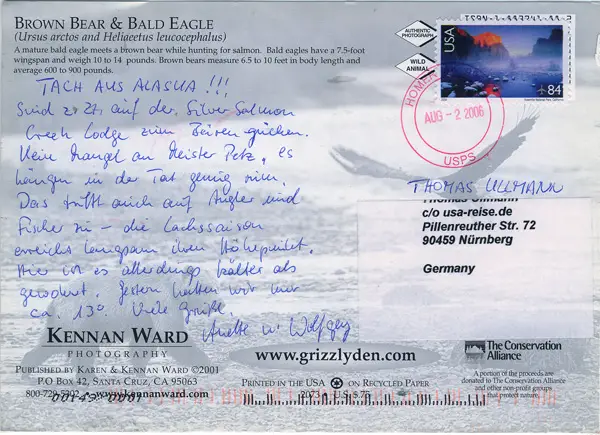 BROWN BEAR & BALD EAGLE
(Ursus arctos and Heliaeetus leucocephalus)
A mature bald eagle meets a brown bear while hunting for salmon. Bald eagles have a 7.5-foot
wingspan and weigh 10 to 14 pounds. Brown bears measure 6.5 to 10 feet in body length and
average 600 to 900 pounds.
TACH AUS ALASKA !!!
Sind z. Zt. auf der Silver Salmon
Creek Lodge zum Bären gucken.
Kein Mangel an Meister Petz, es
hängen in der Tat genug rum.
Das trifft auch auf Angler und
Fischer zu - die Lachssaison
erreicht langsam ihren Höhepunkt.
Hier ist es allerdings kälter als
gewohnt. Gestern hatten wir nur
ca. 13°. Viele Grüße
Anette u. Wolfgang
AUTHENTIC PHOTOGRAPH
WILD ANIMAL
USA
84
HOMER
AUG - 2 2006
USPS
THOMAS ULLMANN
Thomas Ullmann
c/o usa-reise.de
Pillenreuther Str. 72
90459 Nürnberg
Germany
KENNAN WARD
PHOTOGRAPHY
PUBLISHED BY KAREN & KENNAN WARD ©2001
P.O BOX 42, SANTA CRUZ, CA 95063
www.Kennanward.com
www.grizzlyden.com
PRINTED IN THE USA ON RECYCLED PAPER
2073 U.S. $.75
The Conservation
Alliance
A portion of the proceeds are
donated to The Conservation Alliance
and other non-profit groups
that protect nature.